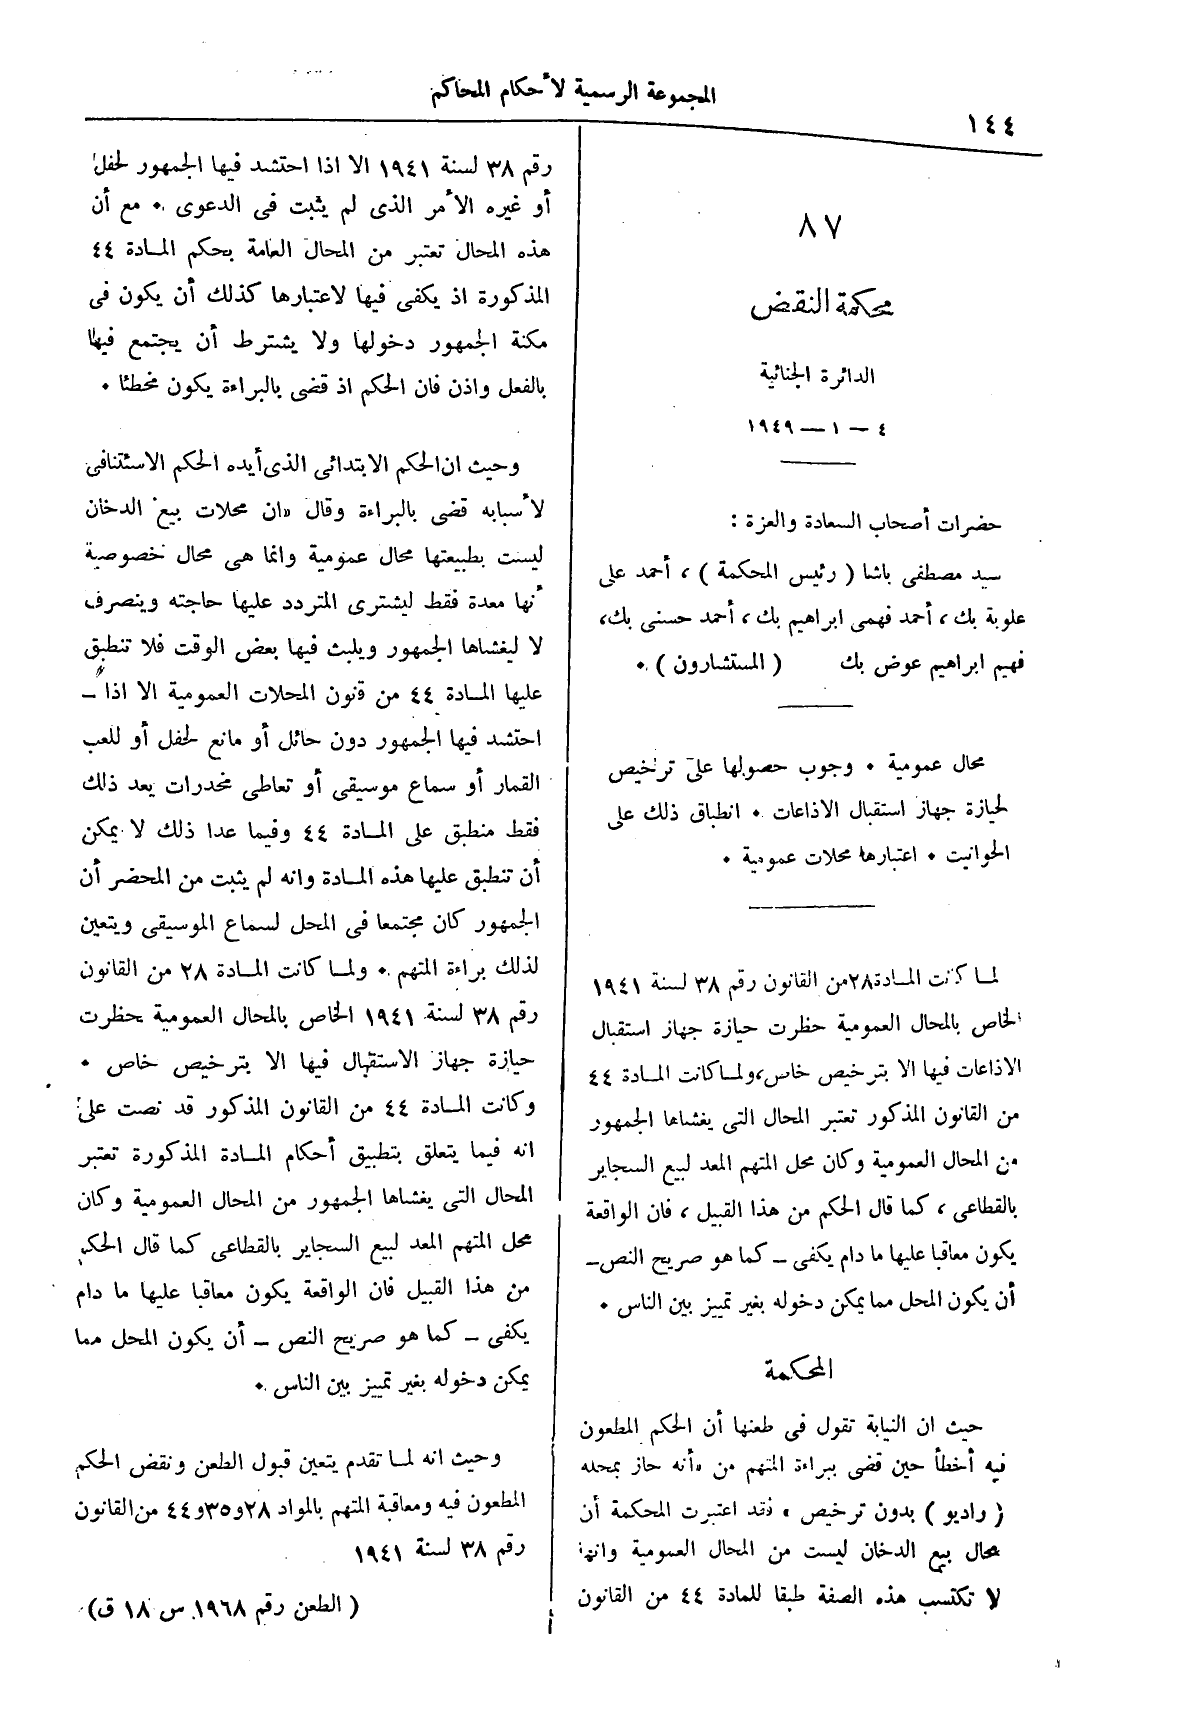 المجموعة الرسمية لأحكام المحاكم
١٤٤
٨٧
محكمة النقض
الدائرة الجنائية
٤ — ١ — ١٩٤٩
حضرات أصحاب السعادة والعزة :
سيد مصطفى باشا ( رئيس المحكمة ) ، أحمد على
علوبة بك ، أحمد فهمى ابراهيم بك ، أحمد حسنى بك،
فهيم ابراهيم عوض بك ( المستشارون ) ٠
محال عمومية ٠ وجوب حصولها على ترخيص
لحيازة جهاز استقبال الاذاعات ٠ انطباق ذلك على
الحوانيت ٠ اعتبارها محلات عمومية ٠
لما كانت المادة٢٨من القانون رقم ٣٨ لسنة ١٩٤١
الخاص بالمحال العمومية حظرت حيازة جهاز استقبال
الاذاعات فيها الا بترخيص خاص،ولما كانت المادة ٤٤
من القانون المذكور تعتبر المحال التى يغشاها الجمهور
من المحال العمومية وكان محل المتهم المعد لبيع السجاير
بالقطاعى ، كما قال الحكم من هذا القبيل ، فان الواقعة
يكون معاقبا عليها ما دام يكفى ــ كما هو صريح النص ــ
أن يكون المحل مما يمكن دخوله بغير تمييز بين الناس ٠
المحكمة
حيث ان النيابة تقول فى طعنها أن الحكم المطعون
فيه أخطأ حين قضى ببراءة المتهم من «أنه حاز بمحله
( راديو ) بدون ترخيص » فقد اعتبرت المحكمة أن
محال بيع الدخان ليست من المحال العمومية وانها
لا تكتسب هذه الصفة طبقا للمادة ٤٤ من القانون
رقم ٣٨ لسنة ١٩٤١ الا اذا احتشد فيها الجمهور لحفل
أو غيره الأمر الذى لم يثبت فى الدعوى ٠ مع أن
هذه المحال تعتبر من المحال العامة بحكم المادة ٤٤
المذكورة اذ يكفى فيها لاعتبارها كذلك أن يكون فى
مكنة الجمهور دخولها ولا يشترط أن يجتمع فيها
بالفعل واذن فان الحكم اذ قضى بالبراءة يكون مخطئا ٠
وحيث ان الحكم الابتدائى الذى أيده الحكم الاستئنافى
لأسبابه قضى بالبراءة وقال «ان محلات بيع الدخان
ليست بطبيعتها محال عمومية وانما هى محال خصوصية
أنها معدة فقط ليشترى المتردد عليها حاجته وينصرف
لا ليغشاها الجمهور ويلبث فيها بعض الوقت فلا تنطبق
عليها المادة ٤٤ من قنون المحلات العمومية الا اذا ــ
احتشد فيها الجمهور دون حائل أو مانع لحفل أو للعب
القمار أو سماع موسيقى أو تعاطى مخدرات يعد ذلك
فقط منطبق على المادة ٤٤ وفيما عدا ذلك لا يمكن
أن تنطبق عليها هذه المادة وانه لم يثبت من المحضر أن
الجمهور كان مجتمعا فى المحل لسماع الموسيقى ويتعين
لذلك براءة المتهم ٠ ولما كانت المادة ٢٨ من القانون
رقم ٣٨ لسنة ١٩٤١ الخاص بالمحال العمومية حظرت
حيازة جهاز الاستقبال فيها الا بترخيص خاص ٠
وكانت المادة ٤٤ من القانون المذكور قد نصت على
انه فيما يتعلق بتطبيق أحكام المادة المذكورة تعتبر
المحال التى يغشاها الجمهور من المحال العمومية وكان
محل المتهم المعد لبيع السجاير بالقطاعى كما قال الحكم
من هذا القبيل فان الواقعة يكون معاقبا عليها ما دام
يكفى ــ كما هو صريح النص ــ أن يكون المحل مما
يمكن دخوله بغير تمييز بين الناس ٠
وحيث انه لما تقدم يتعين قبول الطعن ونقض الحكم
المطعون فيه ومعاقبة المتهم بالمواد ٢٨و٣٥و٤٤ من القانون
رقم ٣٨ لسنة ١٩٤١
( الطعن رقم ١٩٦٨ س ١٨ ق )